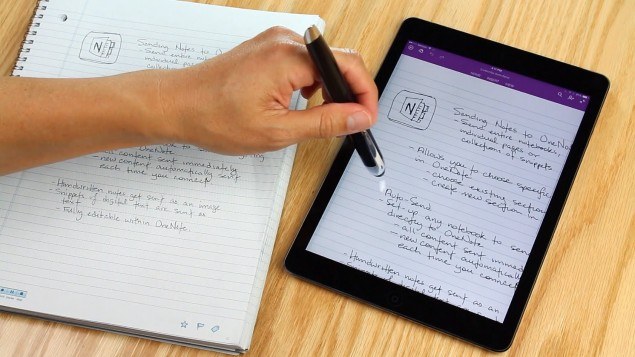 N
Sending Notes to On
- Send entire
individual pages
collections of
OneNote
- all content sent immediately
- new content automatically sent
each time you connect
- Handwritten notes get sent as an image
- Snippets of digital text are sent as
text
- Fully editable within OneNote
N
Sending Notes to OneNote
- Send entire notebooks,
individual pages or
collections of snippets
- Allows you to choose specific
in OneNote
- choose existing section
- create new section
- Auto-Send
- Set up any notebook to send
directly to OneNote
- all content sent immed
- new content automatically
each time you connect
- Handwritten notes get sent as an